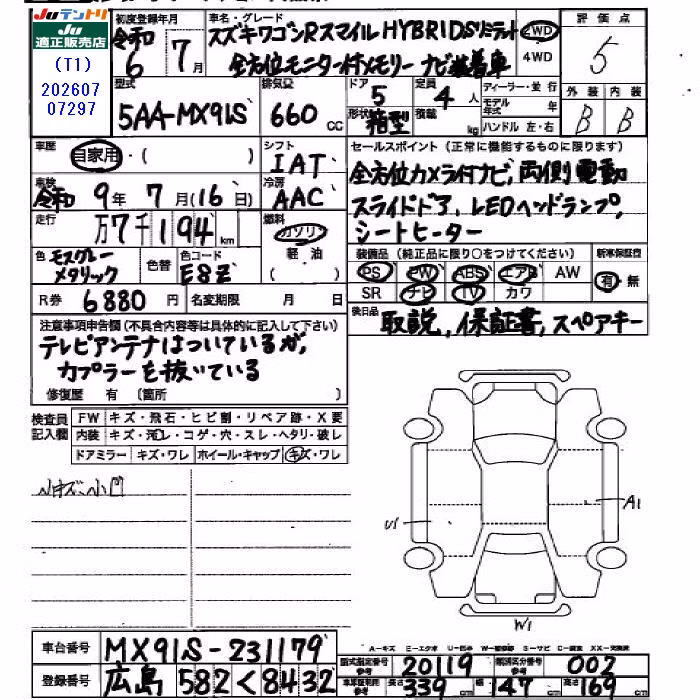 Juテントリ
Ju
適正販売店
(T1)
202607
07297
初度登録年月
令和
6 7月
車名・グレード
スズキワゴンRスマイル HYBRID Sリミテット
全方位モニター付メモリー ナビ装着車
2WD
4WD
評価点
5
型式
5AA-MX91S
排気量
660 CC
ドア
5
定員
4 人
形状
箱型
積載
kg
ディーラー・並行
モデル年式 年
ハンドル 左・右
外装 内装
B B
車歴
自家用・( )
シフト
IAT
車検
令和 9年 7月(16日)
冷房
AAC
走行
万7千194 km
燃料
ガソリン
軽油
( )
色 モスグレーメタリック
色替
色コード
E8Z
R券 6880 円
名変期限 月 日
セールスポイント(正常に機能するものに限ります)
全方位カメラ付ナビ,両側電動
スライドドア,LEDヘッドランプ,
シートヒーター
装備品(純正品に限り○をつけてください)
新車保証書
PS PW ABS エアB AW
SR ナビ TV カワ
有・無
後日品
取説,保証書,スペアキー
注意事項申告欄(不具合内容等は具体的に記入して下さい)
テレビアンテナはついているが,
カプラーを抜いている
修復歴 有 〔箇所 〕
検査員
記入欄
FW キズ・飛石・ヒビ割・リペア跡・X要
内装 キズ・汚レ・コゲ・穴・スレ・ヘタリ・破レ
ドアミラー キズ・ワレ ホイール・キャップ キズ・ワレ
小キズ、小凹
A1
W1
車台番号 MX91S-231179
登録番号 広島 582 く 8432
A−キズ E−エクボ U−凹み W−補修跡 S−サビ C−腐食 XX−交換済
型式指定番号 参考 20119
類別区分番号 参考 002
車庫証明用 参考 長さ 339 cm 幅 147 cm 高さ 169 cm